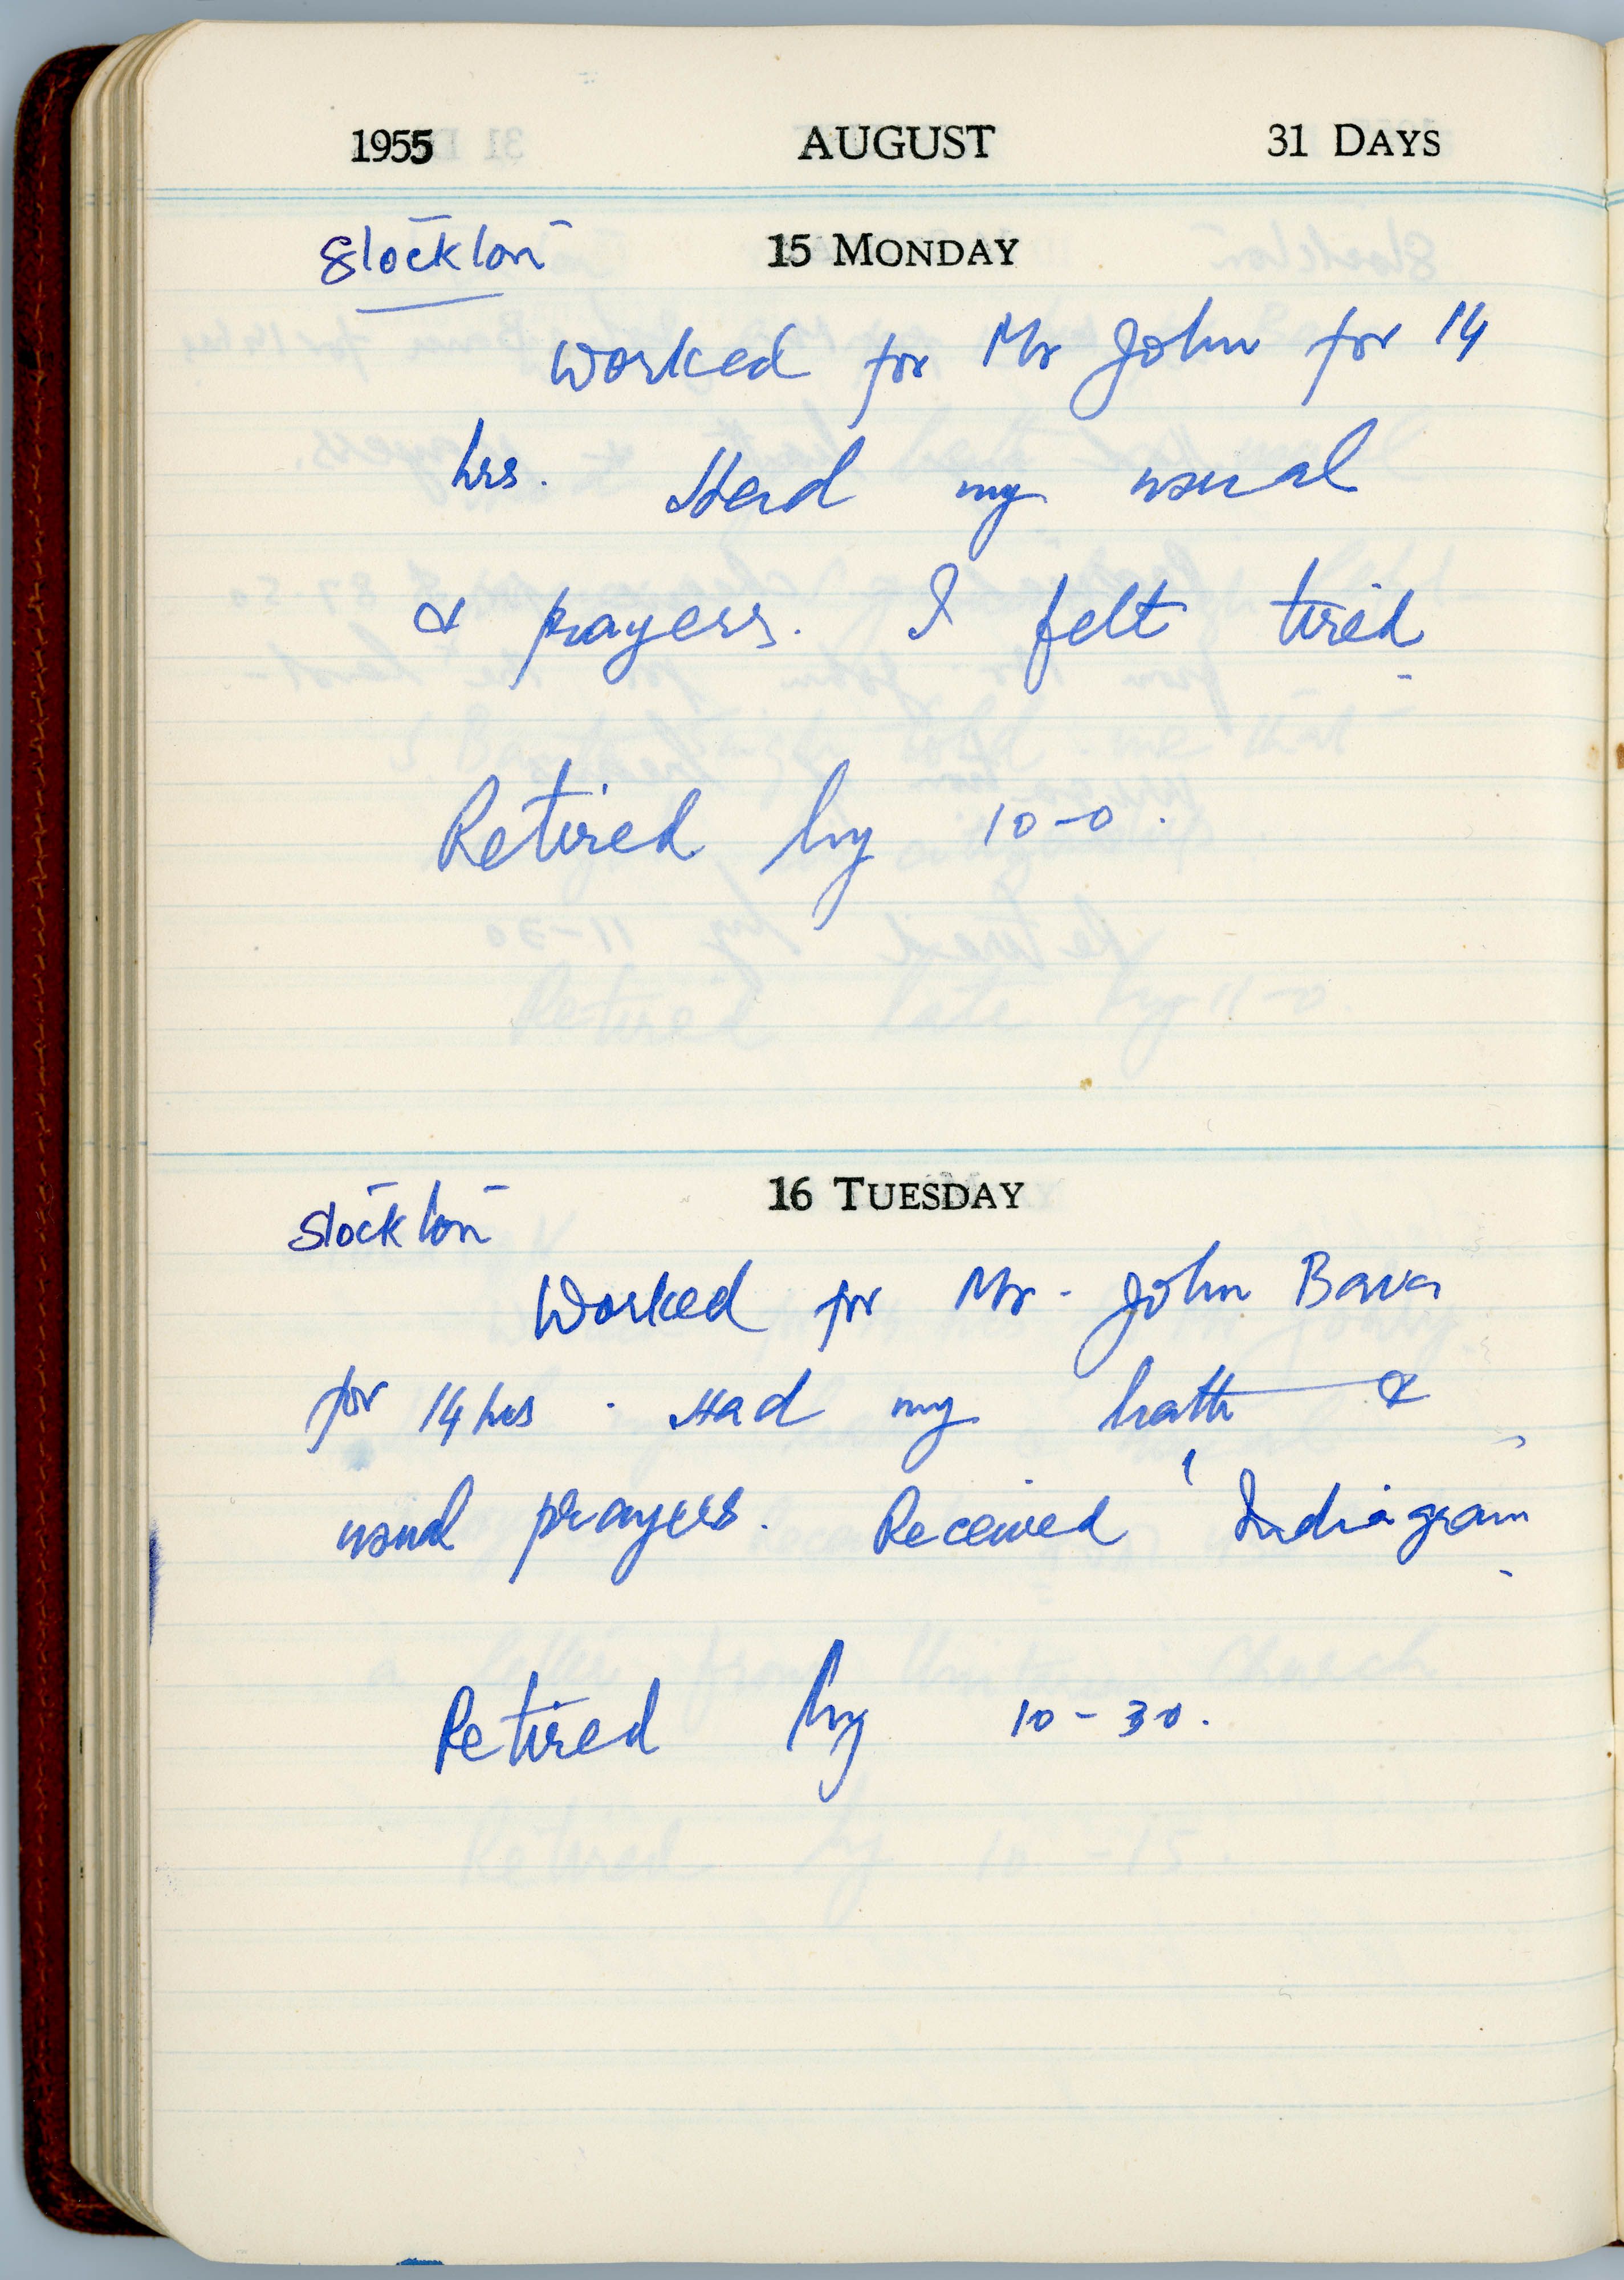 1955 AUGUST 31 DAYS
Stockton 15 MONDAY
Worked for Mr John for 14
hrs. Had my usual
& prayers. I felt tired
Retired by 10-0.
16 TUESDAY
Stockton
Worked for Mr. John Bava
for 14 hrs. Had my bath &
usual prayers. Received Indiagram
Retired by 10-30.